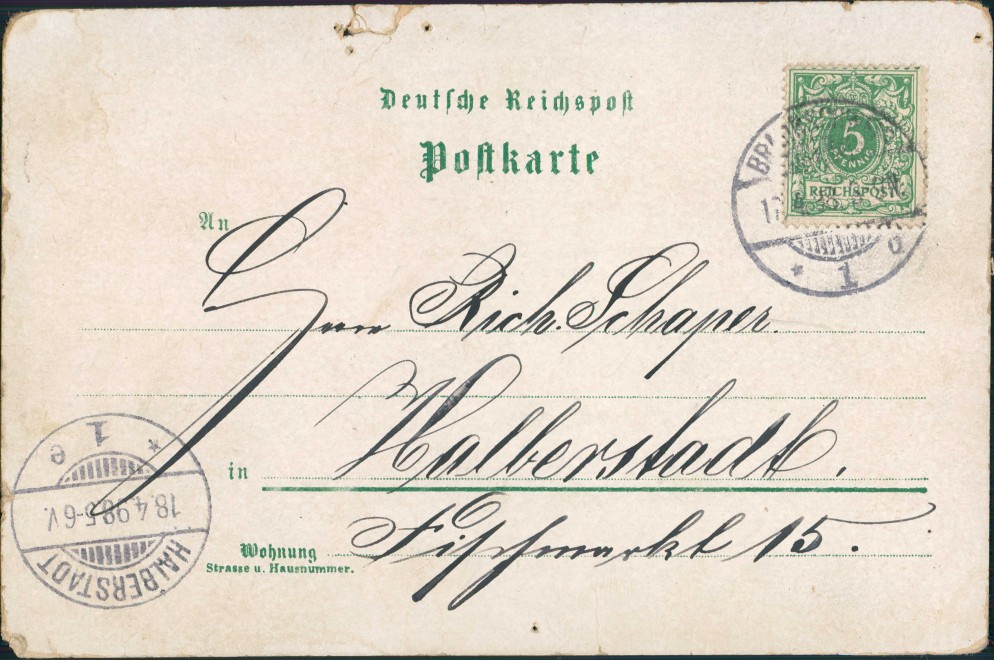 Deutsche Reichspost
Postkarte
5
PFENNIG
REICHSPOST
* 1 d
An
Herrn Rich. Schaper.
in Halberstadt.
Wohnung
Strasse u. Hausnummer.
Fischmarkt 15.
HALBERSTADT
18.4.98.5-6V.
* 1 e